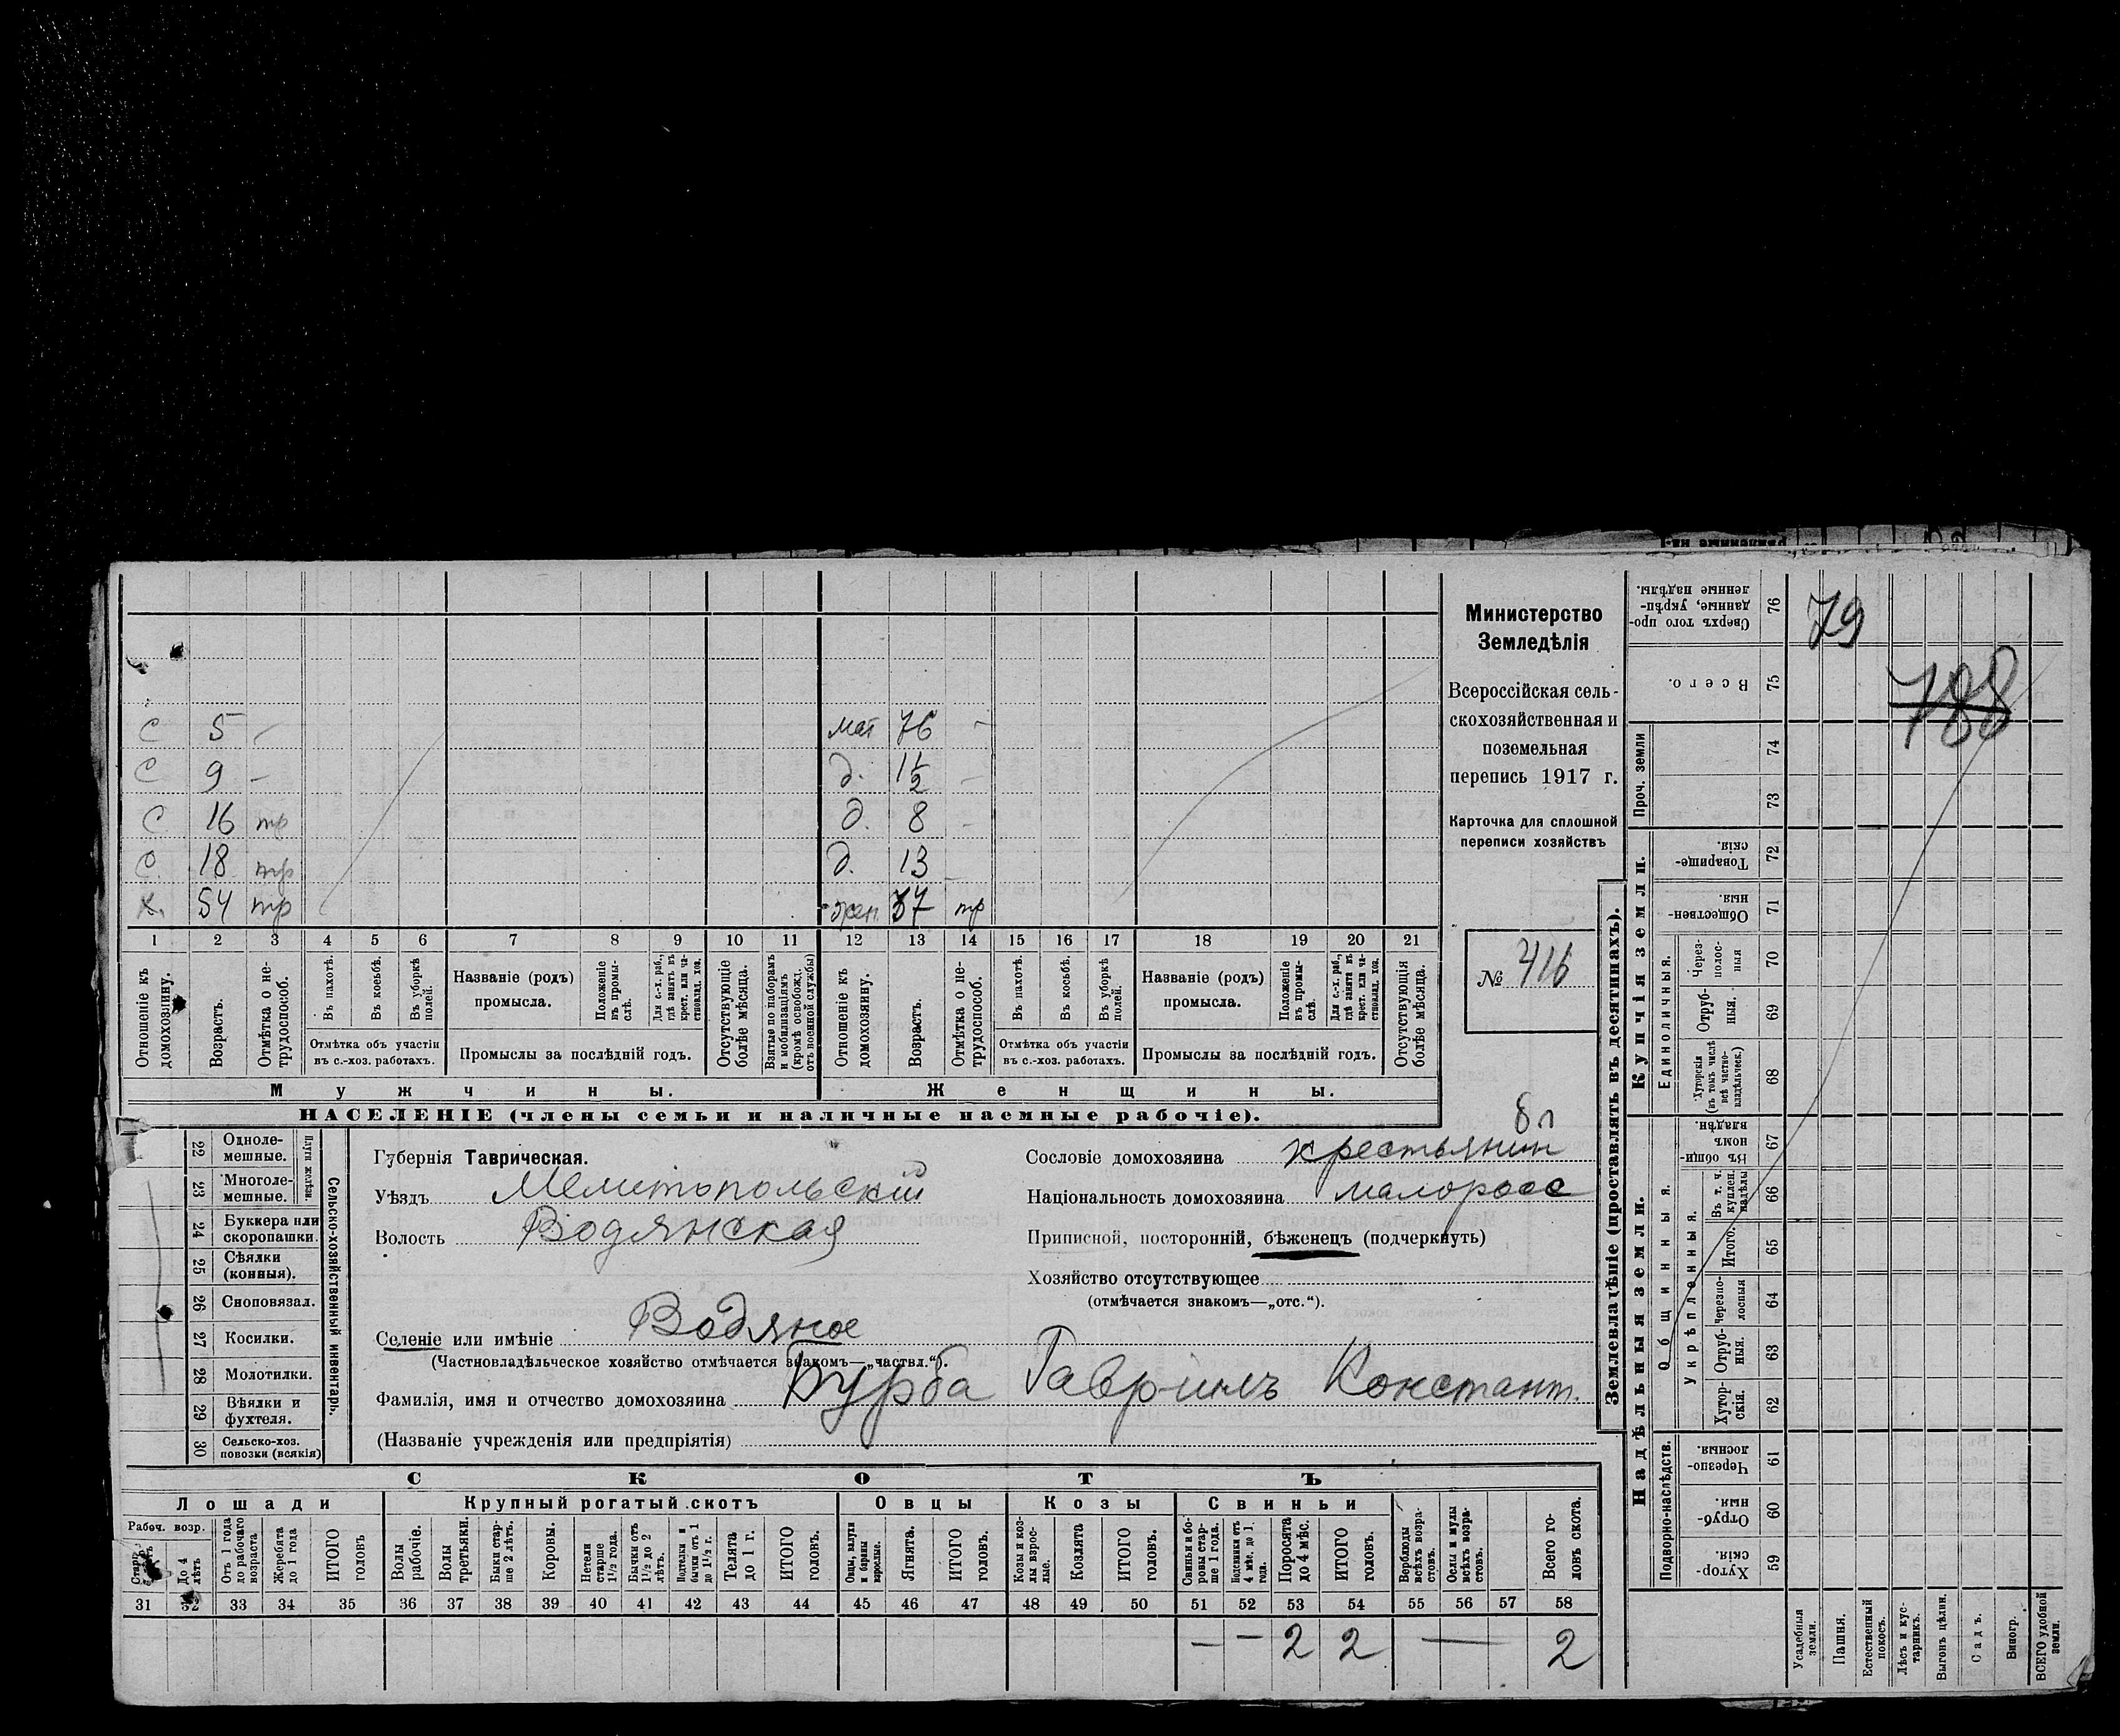 Министерство
Земледѣлія
Всероссійская сель-
скохозяйственная и
поземельная
перепись 1917 г.
Карточка для сплошной
переписи хозяйствъ
№ 416
с 5 -
с 9 -
с 16 тр
с. 18 тр
х. 54 тр
мат 76 -
д. 1½ -
д. 8 -
д. 13 -
жен. 37 тр
1 2 3 4 5 6 7 8 9 10 11 12 13 14 15 16 17 18 19 20 21
Отношеніе къ домохозяину.
Возрастъ.
Отмѣтка о не-трудоспособ.
Въ пахотѣ.
Въ косьбѣ.
Въ уборкѣ полей.
Отмѣтка объ участіи въ с.-хоз. работахъ.
Названіе (родъ) промысла.
Положеніе въ промы-слѣ.
Для с.-х. раб., гдѣ занятъ въ крест. или ча-стновлад. хоз.
Промыслы за послѣдній годъ.
Отсутствующіе болѣе мѣсяца.
Взятые по наборамъ и мобилизаціямъ (кромѣ освобожд. отъ военной службы)
Отношеніе къ домохозяину.
Возрастъ.
Отмѣтка о не-трудоспособ.
Въ пахотѣ.
Въ косьбѣ.
Въ уборкѣ полей.
Отмѣтка объ участіи въ с.-хоз. работахъ.
Названіе (родъ) промысла.
Положеніе въ промы-слѣ.
Для с.-х. раб., гдѣ занятъ въ крест. или ча-стновлад. хоз.
Промыслы за послѣдній годъ.
Отсутствующія болѣе мѣсяца.
Мужчины. Женщины.
НАСЕЛЕНІЕ (члены семьи и наличные наемные рабочіе).
22 Одноле-мешные.
23 Многоле-мешные.
Плуги желѣзн.
24 Буккера или скоропашки.
25 Сѣялки (конныя).
26 Сноповязал.
27 Косилки.
28 Молотилки.
29 Вѣялки и фухтеля.
30 Сельско-хоз. повозки (всякія)
Сельско-хозяйственный инвентарь.
Губернія Таврическая.
Уѣздъ Мелитопольскій
Волость Водянская
Селеніе или имѣніе Водяное
(Частновладѣльческое хозяйство отмѣчается знакомъ—„частвл.“).
Фамилія, имя и отчество домохозяина Бурба Гавріилъ Констант.
(Названіе учрежденія или предпріятія)
Сословіе домохозяина крестьянин
Національность домохозяина малоросс
Приписной, посторонній, бѣженецъ (подчеркнуть)
Хозяйство отсутствующее
(отмѣчается знакомъ—„отс.“).
СКОТЪ
Лошади Крупный рогатый скотъ Овцы Козы Свиньи
Рабоч. возр.
До 4 лѣтъ
Отъ 1 года до рабочаго возраста
Жеребята до 1 года
ИТОГО головъ
Волы рабочіе.
Волы третьяки.
Быки стар-ше 2 лѣтъ.
Коровы.
Нетели старше 1½ года.
Бычки отъ 1½ до 2 лѣтъ.
Подтелки и бычки отъ 1 до 1½ г.
Телята до 1 г.
ИТОГО головъ.
Овцы, валухи и бараны взрослые.
Ягнята.
ИТОГО головъ.
Козы и коз-лы взрос-лые.
Козлята
ИТОГО головъ.
Свиньи и бо-ровы стар-ше 1 года.
Подсвинки отъ 4 мѣс. до 1. года.
Поросята до 4 мѣс.
ИТОГО головъ.
Верблюды всѣхъ возра-стовъ.
Ослы и мулы всѣхъ возра-стовъ.
Всего го-ловъ скота.
31 32 33 34 35 36 37 38 39 40 41 42 43 44 45 46 47 48 49 50 51 52 53 54 55 56 57 58
— — 2 2 — 2
Землевладѣніе (проставлять въ десятинахъ).
Надѣльныя земли. Купчія земли. Проч. земли
Подворно-наслѣдств.
Общинныя.
Укрѣпленныя.
Единоличныя.
76 Сверхъ того про-данные, укрѣп-ленные надѣлы.
75 Всего.
74
73
72 Товарище-скія.
71 Обществен-ныя
70 Через-полос-ныя
69 Отруб-ныя.
68 Хуторскія (въ томъ числѣ всѣ частно-владѣльческ.)
67 Въ общи-номъ владѣн.
66 Въ т. ч. куплен. надѣлы
65 Итого.
64 Черезпо-лосныя
63 Отруб-ныя.
62 Хутор-скія.
61 Черезпо-лосныя.
60 Отруб-ныя.
59 Хутор-скія.
Усадебныя земли.
Пашня.
Естественный покосъ.
Лѣсъ и кус-тарникъ.
Выгонъ цѣлин.
Садъ.
Виногр.
ВСЕГО удобной земли.
79
788